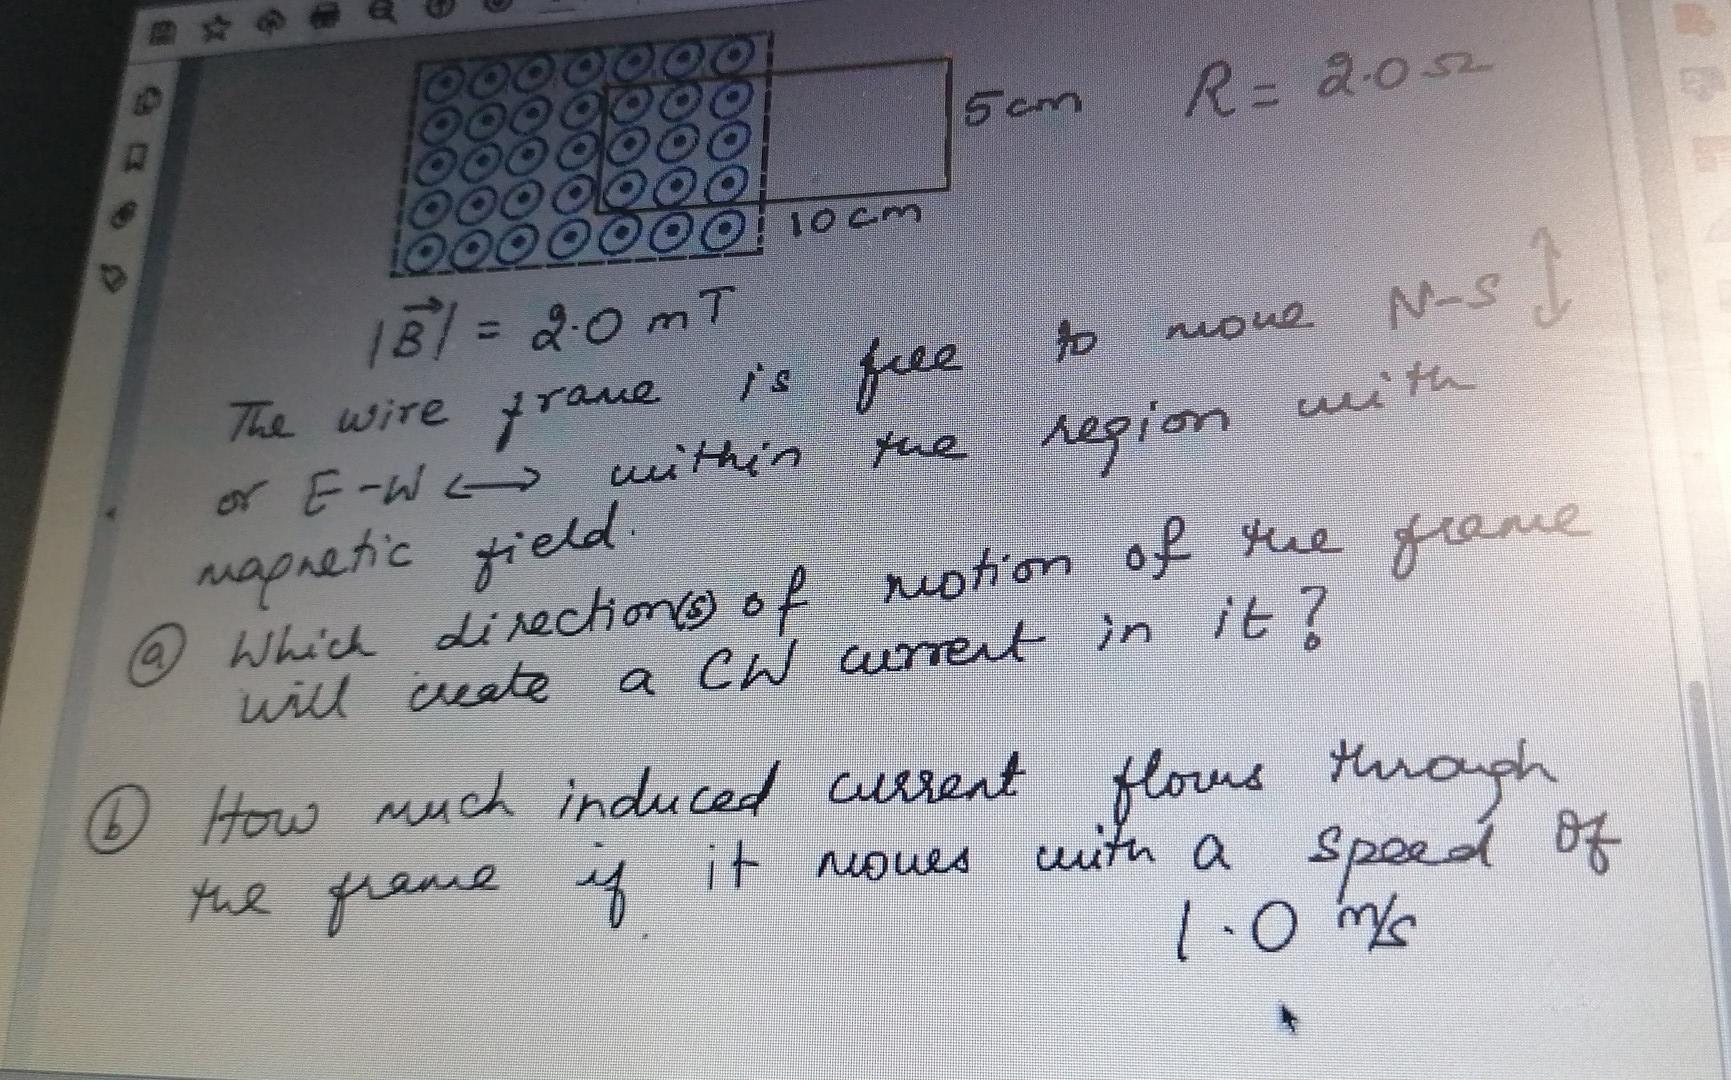 5cm R = 2.0 Ω
10cm
|B⃗| = 2.0 mT
The wire frame is free to move N-S ↕
or E-W ↔ within the region with
magnetic field.
ⓐ Which direction(s) of motion of the frame
will create a CW current in it?
ⓑ How much induced current flows through
the frame if it moves with a speed of
1.0 m/s